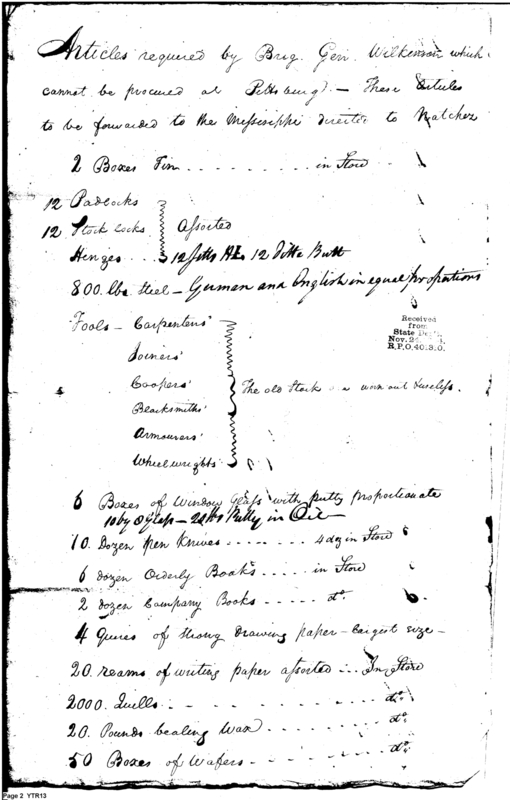 Articles required by Brig. Gen. Wilkinson which
cannot be procured at Pittsburg). — These Articles
to be forwarded to the Missisippi directed to Natchez
2 Boxes Tin . . . . . . . . . in Store
12 Padlocks
12 Stock Locks } Assorted
Henges . . . 12 12 Ditto Butt
800. lbs. Steel — German and English in equal proportions
Received
from
State Dept.
Nov. 24,
R.P.O. 40.3.0.
Tools — Carpenters'
Joiners'
Coopers' The old Stock worn out & useless.
Blacksmiths'
Armourers'
Wheelwrights
6 Boxes of Window Glass with putty proportionate
10 by 8 Glass — Putty in Oil
10. Dozen Pen Knives . . . . . . 4 doz in Store
6 dozen Orderly Books . . . . . in Store
2 dozen Company Books . . . . . do.
4 Quires of strong drawing paper — largest size —
20. reams of writing paper assorted . . . In Store
2000. Quills . . . . . . . . . . do.
20. Pounds Sealing Wax . . . . . . . . do.
50 Boxes of Wafers . . . . . . . do.
Page 2 YTR13